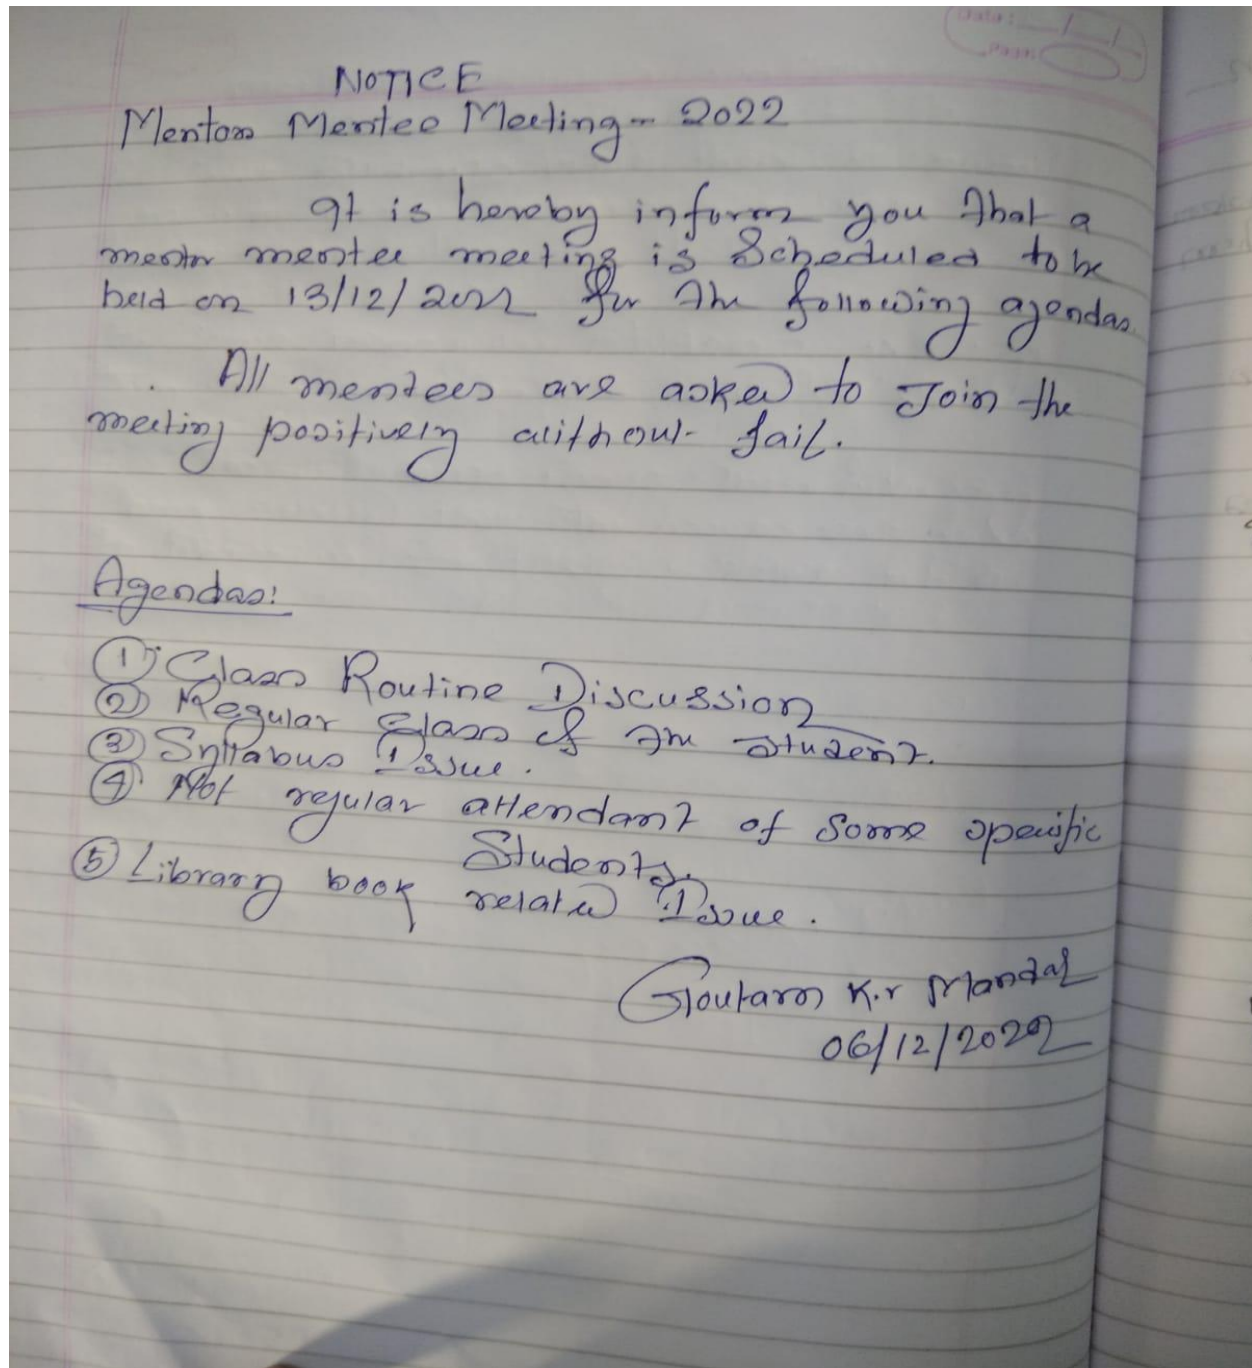 NOTICE
Mentor Mentee Meeting - 2022
It is hereby inform you that a
mentor mentee meeting is Scheduled to be
held on 13/12/2022 for the following agendas.
All mentees are asked to Join the
meeting positively without fail.
Agendas:
① Class Routine Discussion
② Regular Class of the student.
③ Syllabus Issue.
④ Not regular attendant of some specific
Students.
⑤ Library book related Issue.
Goutam K.r Mandal
06/12/2022